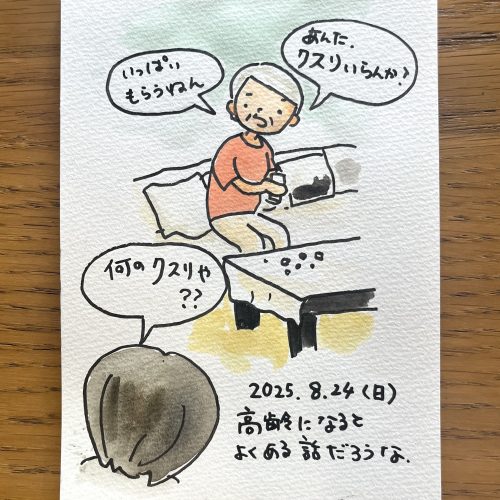 あんた、
クスリいらんか?
いっぱい
もらうねん
何のクスリや
??
2025.8.24(日)
高齢になると
よくある話だろうな.